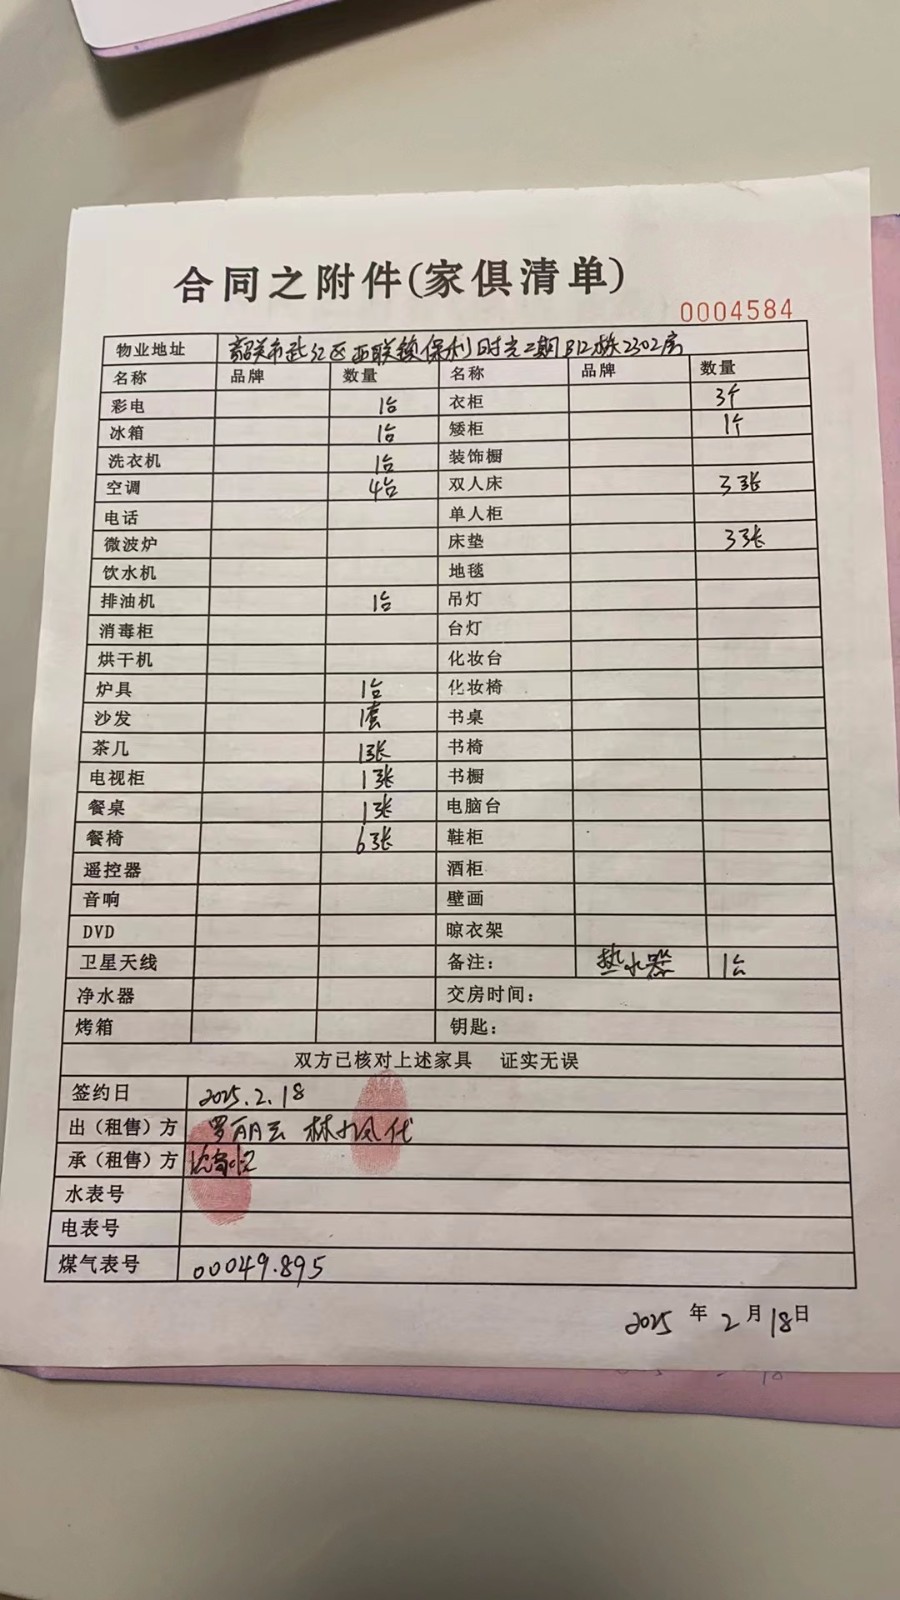 合同之附件(家俱清单)
0004584
物业地址 韶关市武江区西联镇保利时光二期B12栋2302房
名称 品牌 数量 名称 品牌 数量
彩电 1台 衣柜 3个
冰箱 1台 矮柜 1个
洗衣机 1台 装饰橱
空调 4台 双人床 3张
电话 单人柜
微波炉 床垫 3张
饮水机 地毯
排油机 1台 吊灯
消毒柜 台灯
烘干机 化妆台
炉具 1台 化妆椅
沙发 1套 书桌
茶几 1张 书椅
电视柜 1张 书橱
餐桌 1张 电脑台
餐椅 6张 鞋柜
遥控器 酒柜
音响 壁画
DVD 晾衣架
卫星天线 备注： 热水器 1台
净水器 交房时间：
烤箱 钥匙：
双方已核对上述家具 证实无误
签约日 2025.2.18
出（租售）方 罗丽云 林 代
承（租售）方
水表号
电表号
煤气表号 00049.895
2025 年 2 月 18 日